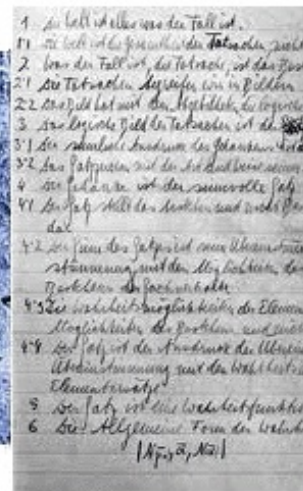 1 Die Welt ist alles was der Fall ist.
1·1 Die Welt ist die Gesamtheit der Tatsachen nicht
2 Was der Fall ist, die Tatsache, ist das
2·1 Die Tatsachen begreifen wir in Bildern
2·2 Das Bild hat mit dem Abgebildeten die logische
3 Das logische Bild der Tatsachen ist der
3·1 Der sinnliche Ausdruck des Gedankens ist das
3·2 Das Satzzeichen mit der Art und Weise seiner
4 Der Gedanke ist der sinnvolle Satz
4·1 Der Satz stellt das Bestehen und nicht
dar
4·2 Der Sinn des Satzes ist seine
stimmung mit den Möglichkeiten des
Bestehens der Sachverhalte
4·3 Die Wahrheitsmöglichkeiten der
Möglichkeiten des Bestehens und
4·4 Der Satz ist der Ausdruck der
mit den
Elementarsätze
5 Der Satz ist eine Wahrheitsfunktion
6 Die Allgemeine Form der